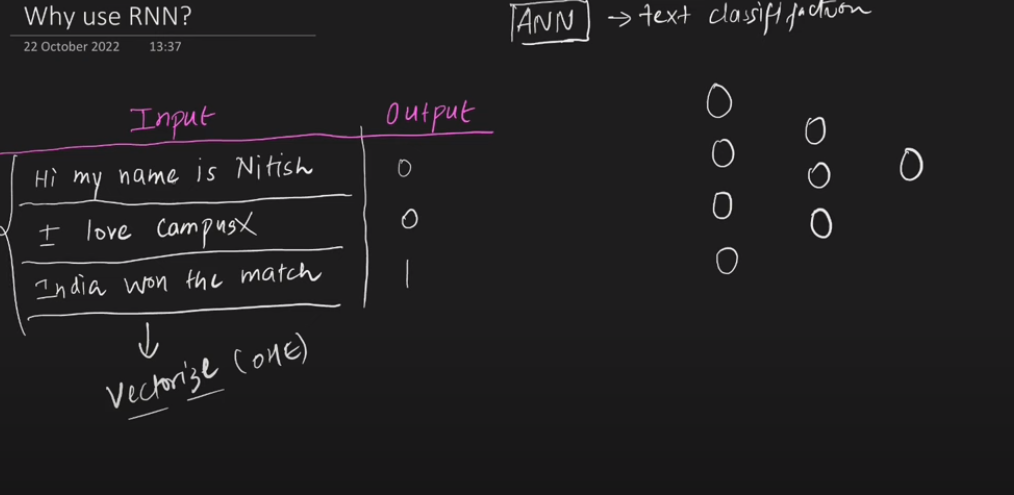 Why use RNN?
22 October 2022 13:37
ANN → text classification
Input Output
Hi my name is Nitish 0
I love campusX 0
India won the match 1
Vectorize (OHE)